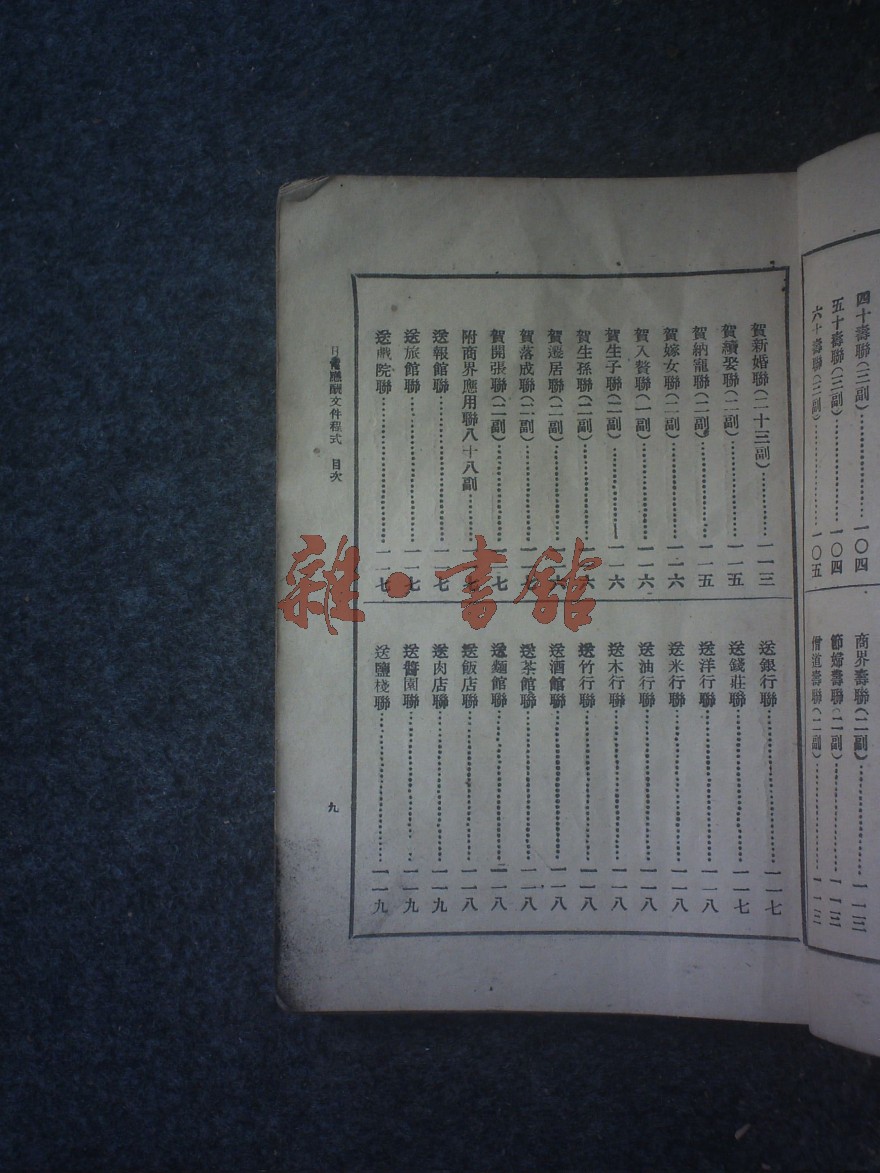 四十壽聯(三副)⋯⋯一〇四
五十壽聯(三副)⋯⋯一〇四
六十壽聯(三副)⋯⋯一〇五
商界壽聯(二副)⋯⋯一一三
節婦壽聯(二副)⋯⋯一一三
僧道壽聯(二副)⋯⋯一一三
賀新婚聯(二十三副)⋯⋯一一三
賀續娶聯(二副)⋯⋯一一五
賀納寵聯(二副)⋯⋯一一五
賀嫁女聯(二副)⋯⋯一一六
賀入贅聯(一副)⋯⋯一一六
賀生子聯(二副)⋯⋯一一六
賀生孫聯(二副)⋯⋯一一六
賀遷居聯(二副)⋯⋯一一六
賀落成聯(二副)⋯⋯一一七
賀開張聯(二副)⋯⋯一一七
附商界應用聯八十八副⋯⋯一一七
送報館聯⋯⋯一一七
送旅館聯⋯⋯一一七
送戲院聯⋯⋯一一七
送銀行聯⋯⋯一一七
送錢莊聯⋯⋯一一七
送洋行聯⋯⋯一一八
送米行聯⋯⋯一一八
送油行聯⋯⋯一一八
送木行聯⋯⋯一一八
送竹行聯⋯⋯一一八
送酒館聯⋯⋯一一八
送茶館聯⋯⋯一一八
送麵館聯⋯⋯一一八
送飯店聯⋯⋯一一八
送肉店聯⋯⋯一一九
送醬園聯⋯⋯一一九
送鹽棧聯⋯⋯一一九
日常應酬文件程式 目次
九
雜·書館